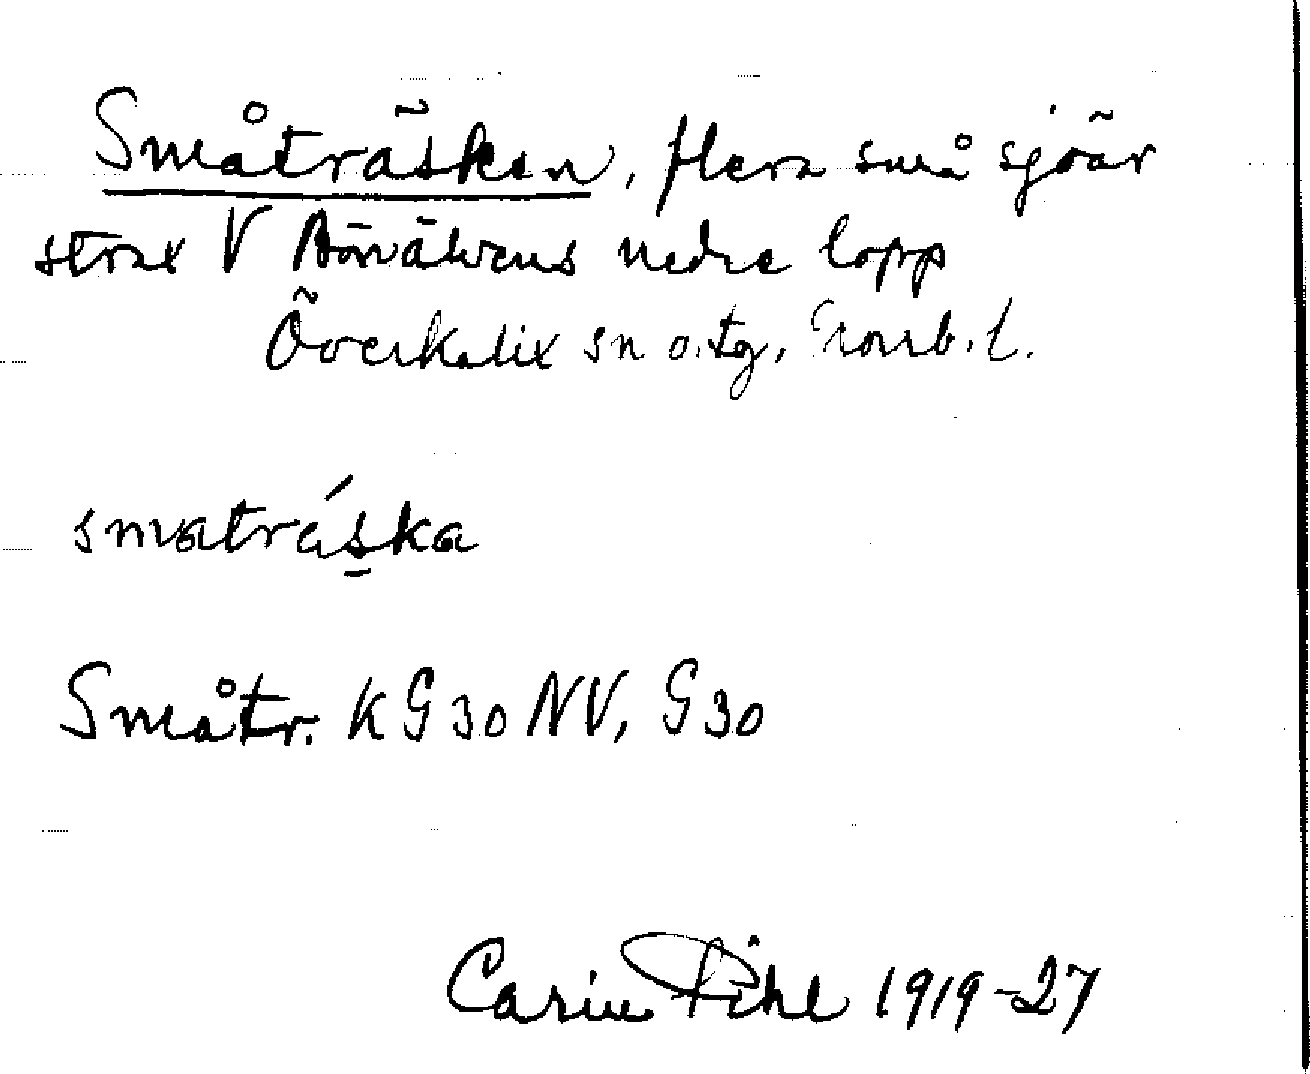 Småträsken, flera små sjöar
strax V Börvälvens nedre lopp
Överkalix sn o. tg, Norrb. l.
smatráska
Småtr. K G 30 NV, G 30
Carin Pihl 1919-27